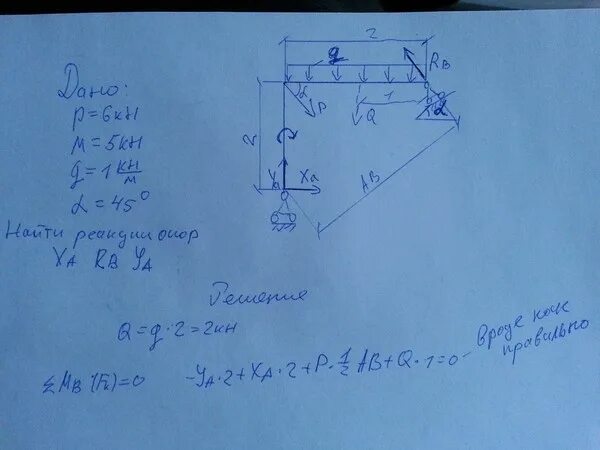 Дано:
P=6кН
M=5кН
q=1 кН/м
α=45°
Найти реакции опор
XA RB YA
2
q
RB
α
P
1
Q
α
2
Ya
Xa
AB
Решение
Q=q·2=2кН
ΣMB(Fk)=0 -YA·2+XA·2+P·1/2 AB+Q·1=0- вроде как
правильно